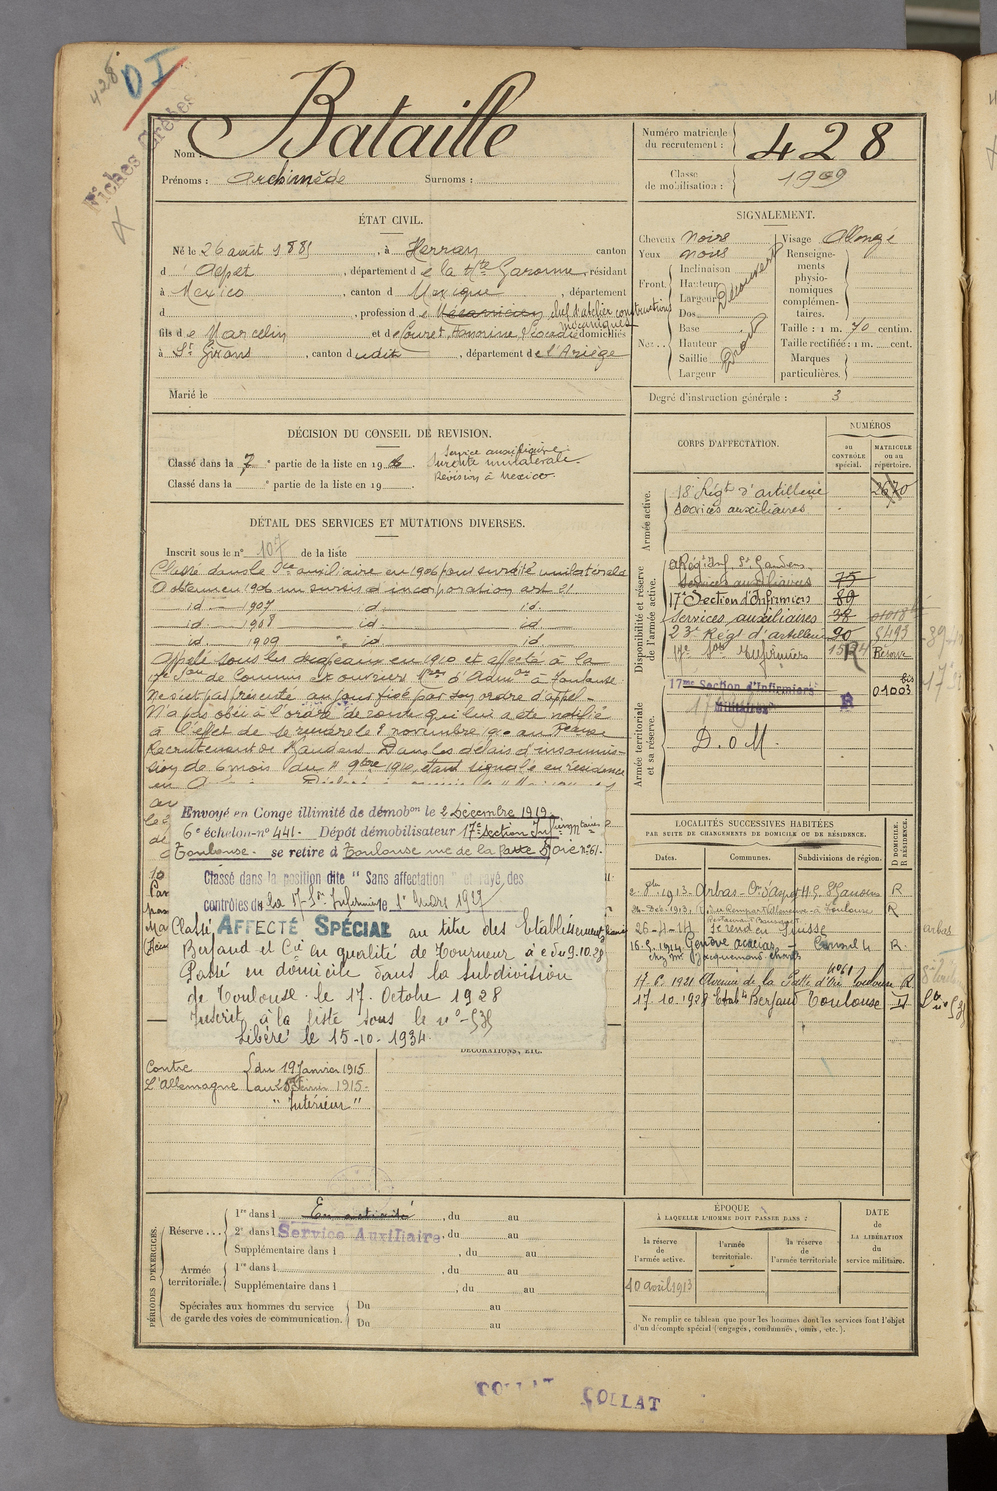 428
D I
Fiches Grêtes
Nom : Bataille
Prénoms : Archimède Surnoms :
Numéro matricule
du recrutement : 428
Classe
de mobilisation : 1909
ÉTAT CIVIL.
Né le 26 août 1885, à Herran canton
d'Aspet, département de la Hte Garonne, résidant
à Mexico, canton d Mexique, département
d , profession de Mecanicien chef d'atelier constructions
mécaniques
fils de Marcelin et de Couret, Honorine Léocadie domiciliés
à St Girons, canton dudit, département de l'Ariège
Marié le
SIGNALEMENT.
Cheveux noirs
Yeux noirs
Front. Inclinaison
Hauteur
Largeur
Découvert
Nez .. Dos
Base
Hauteur
Saillie
Largeur
Droit
Visage Allongé
Renseigne-
ments
physio-
nomiques
complémen-
taires.
Taille : 1 m. 70 centim.
Taille rectifiée : 1 m. cent.
Marques
particulières.
Degré d'instruction générale : 3
DÉCISION DU CONSEIL DE REVISION.
Classé dans la 7e partie de la liste en 1906.
Classé dans la e partie de la liste en 19
Service auxiliaire
Surdité unilatérale.
Révision à Mexico.
DÉTAIL DES SERVICES ET MUTATIONS DIVERSES.
Inscrit sous le n° 107 de la liste
Classé dans le Sce auxiliaire en 1906 pour surdité unilatérale
A obtenu en 1906 un sursis d'incorporation art 21
id. 1907 id. id.
id. 1908 id. id.
id. 1909 id. id.
Appelé sous les drapeaux en 1910 et affecté à la
17e Son de Commis et ouvriers Mres d'Admon à Toulouse
Ne s'est pas présenté au jour fixé par son ordre d'appel.
N'a pas obéi à l'ordre de route qui lui a été notifié
à l'effet de se rendre le novembre 1910 au Bureau
Recrutement de St Gaudens. Dans les délais d'insoumis-
sion de 6 mois du 9bre 1910, étant signalé en résidence
Envoyé en Congé illimité de démobon le 2 Décembre 1919
6e échelon-n° 441. Dépôt démobilisateur 17e Section Infirmiers
Toulouse. se retire à Toulouse rue de la Patte d'Oie n°61.
Classé dans la position dite "Sans affectation" et rayé des
contrôles de la 17e Son Infirmiers le 1er Mars 1927
Classé AFFECTÉ SPÉCIAL au titre des Etablissements
Berjaud et Cie en qualité de Tourneur à c du 9.10.28
Passé en domicile dans la subdivision
de Toulouse le 17 Octobre 1928
Inscrit à la liste sous le n° 535
Libéré le 15-10-1934.
DÉCORATIONS, ETC.
Contre
L'Allemagne
du 19 Janvier 1915
au 25 Février 1915
"Intérieur"
CORPS D'AFFECTATION.
NUMÉROS
au
CONTRÔLE
spécial.
MATRICULE
ou au
répertoire.
Armée active.
18e Régt d'artillerie 2670
Services auxiliaires
Disponibilité et réserve
de l'armée active.
Régt Inf. St Gaudens.
Services auxiliaires 75
17e Section d'Infirmiers 89
Services auxiliaires 38 01018
23e Régt d'artillerie 90 9493
17e Son Infirmiers 1524 Réserve
R
Armée territoriale
et sa réserve.
17me Section d'Infirmiers
Militaires
R
bis
01003
D. o M.
LOCALITÉS SUCCESSIVES HABITÉES
PAR SUITE DE CHANGEMENTS DE DOMICILE OU DE RÉSIDENCE.
Dates. Communes. Subdivisions de région. D DOMICILE. R RÉSIDENCE.
8bre 1913 Arbas - Cton d'Aspet H.G. St Gaudens R
24 Déc. 1913 Toulouse R
26-4-14 Se rend en Suisse
16-5-1914 Genève acacias R
chez Mr Jacquemond Charles
17.6.1921 Avenue de la Patte d'Oie n°61 Toulouse R.
17.10.1928 Etabts Berjaud Toulouse D
PÉRIODES D'EXERCICES.
Réserve ... 1re dans l En activité, du au
2e dans l Service Auxiliaire, du au
Supplémentaire dans l , du au
Armée
territoriale. 1re dans l , du au
Supplémentaire dans l , du au
Spéciales aux hommes du service
de garde des voies de communication. Du au
Du au
ÉPOQUE
À LAQUELLE L'HOMME DOIT PASSER DANS :
la réserve
de
l'armée active.
l'armée
territoriale.
la réserve
de
l'armée territoriale
DATE
de
LA LIBÉRATION
du
service militaire.
10 avril 1913
Ne remplir ce tableau que pour les hommes dont les services font l'objet
d'un décompte spécial (engagés, condamnés, omis, etc.).
COLLAT COLLAT